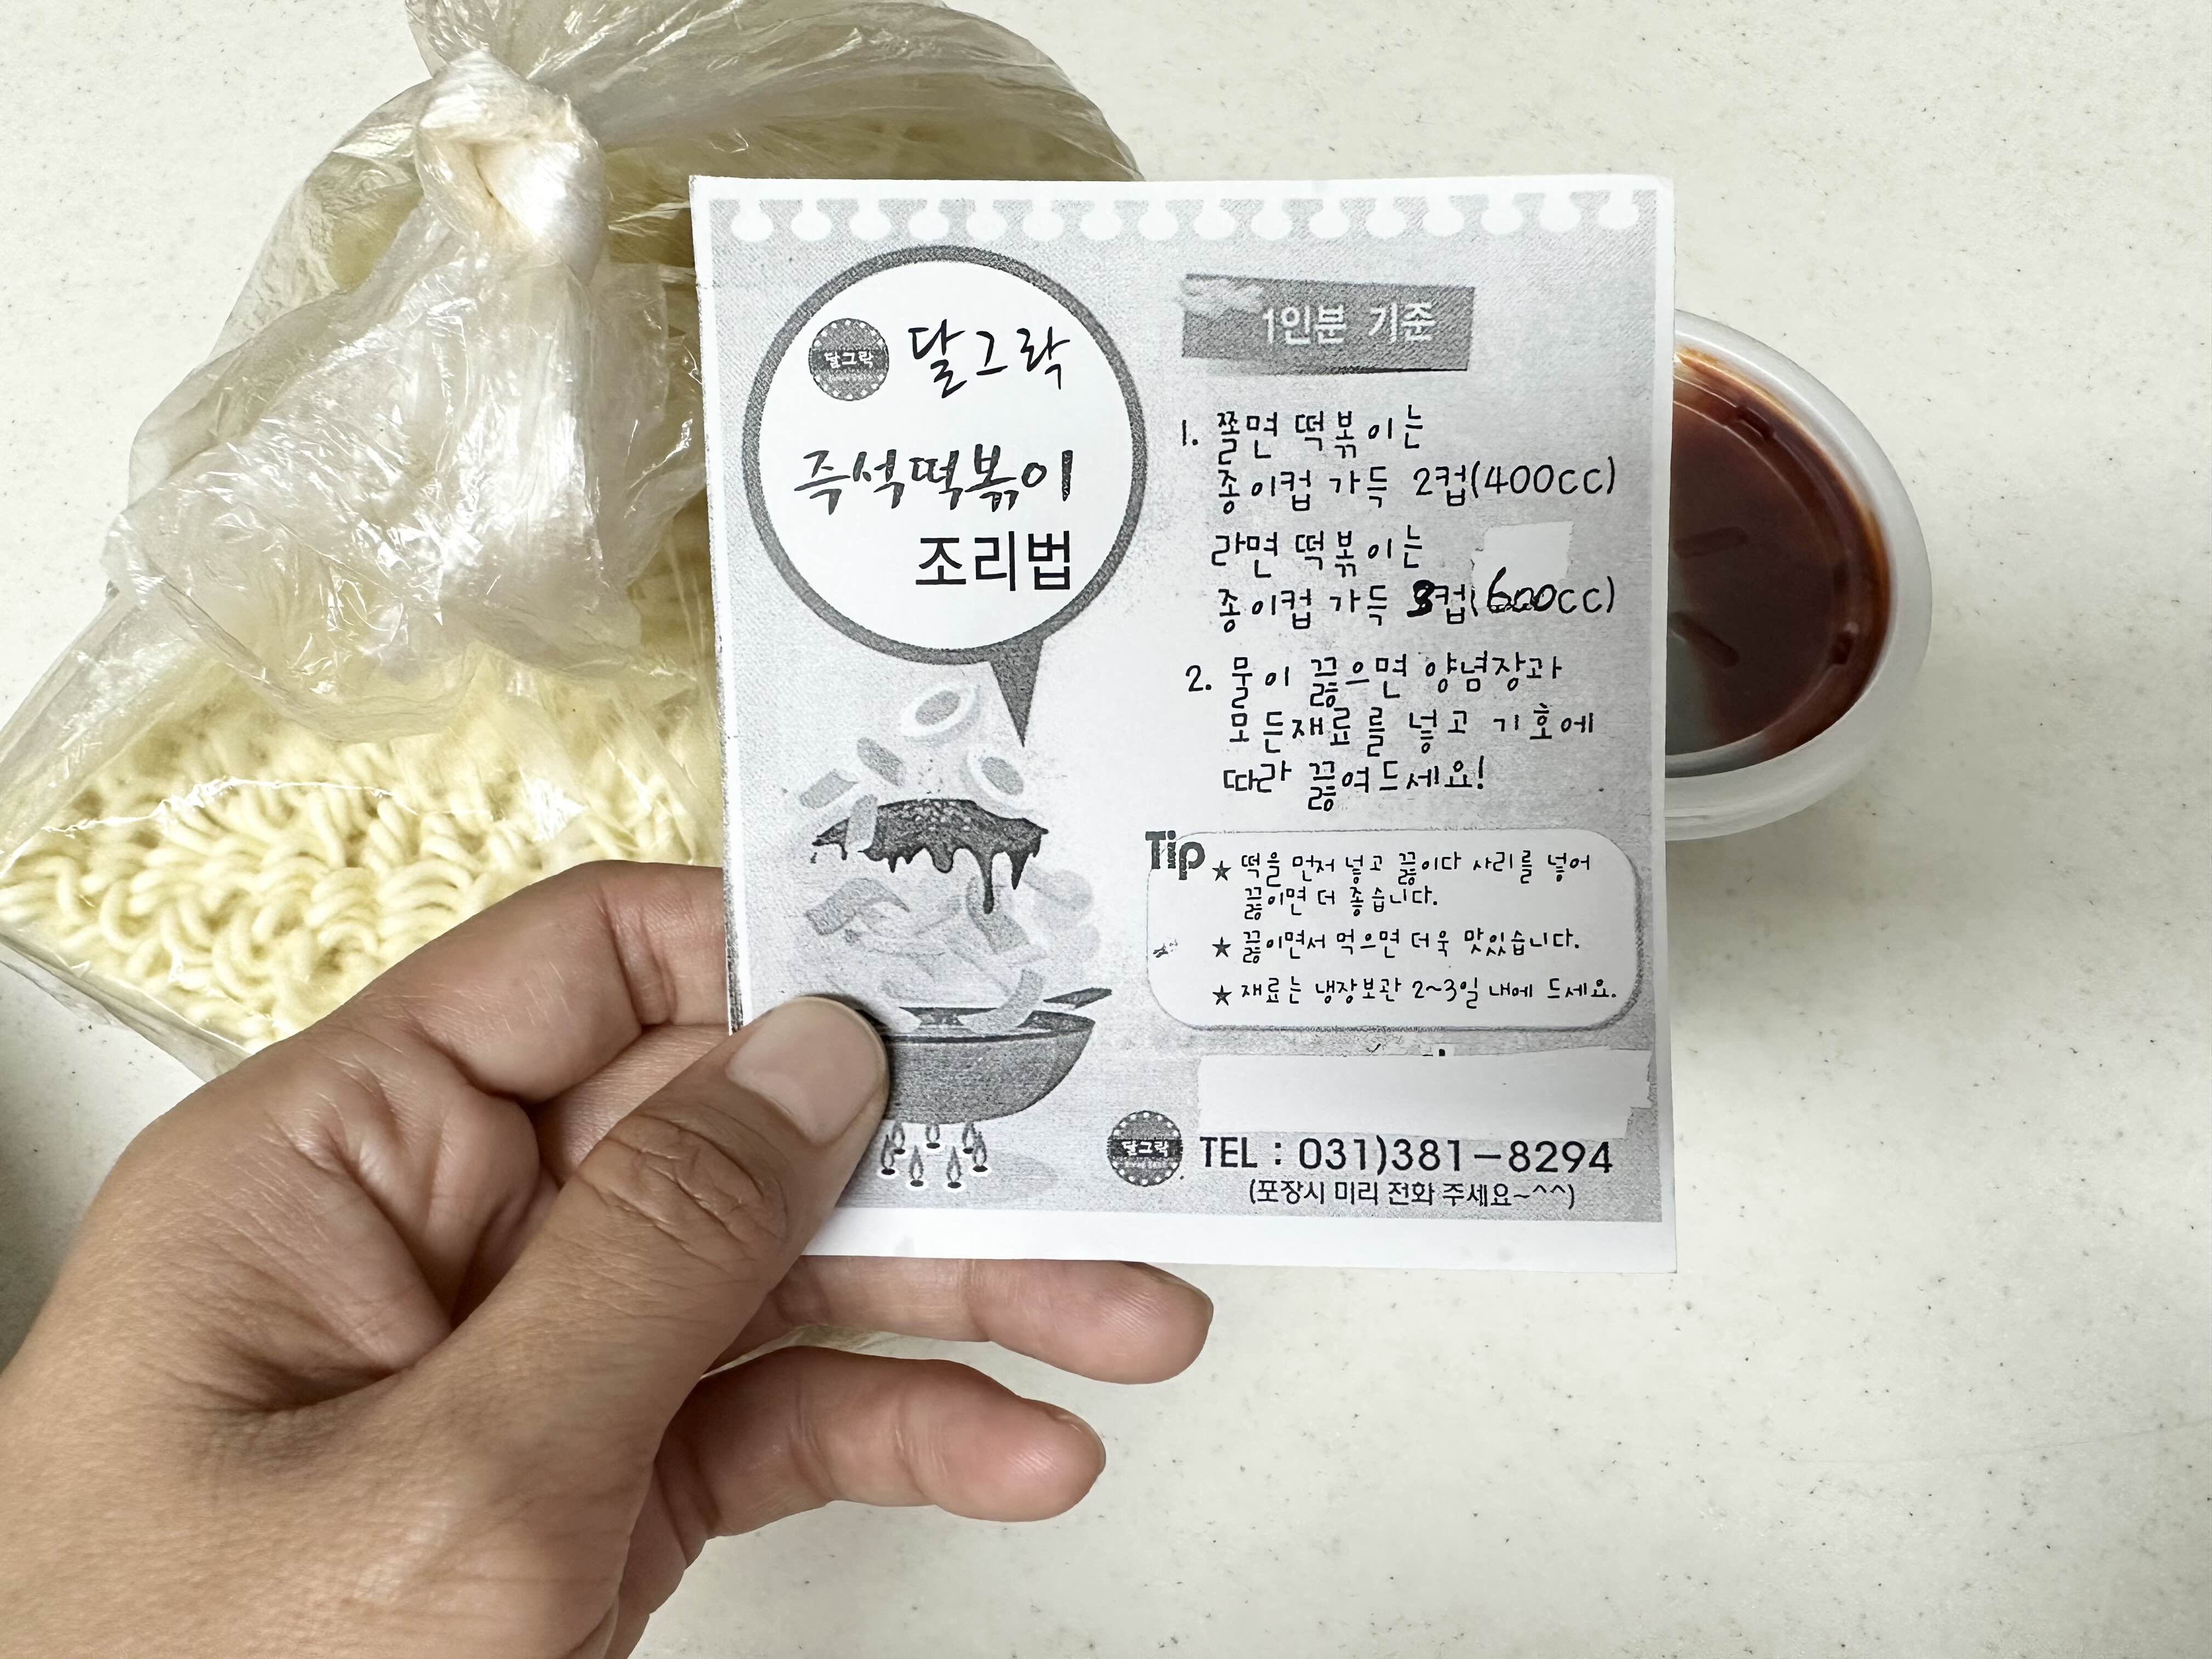 달그락
달그락
즉석떡볶이
조리법
1인분 기준
1. 쫄면 떡볶이는
종이컵 가득 2컵(400cc)
라면 떡볶이는
종이컵 가득 3컵(600cc)
2. 물이 끓으면 양념장과
모든재료를 넣고 기호에
따라 끓여드세요!
Tip
★ 떡을 먼저 넣고 끓이다 사리를 넣어
끓이면 더 좋습니다.
★ 끓이면서 먹으면 더욱 맛있습니다.
★ 재료는 냉장보관 2~3일 내에 드세요.
달그락
TEL : 031)381-8294
(포장시 미리 전화 주세요~^^)